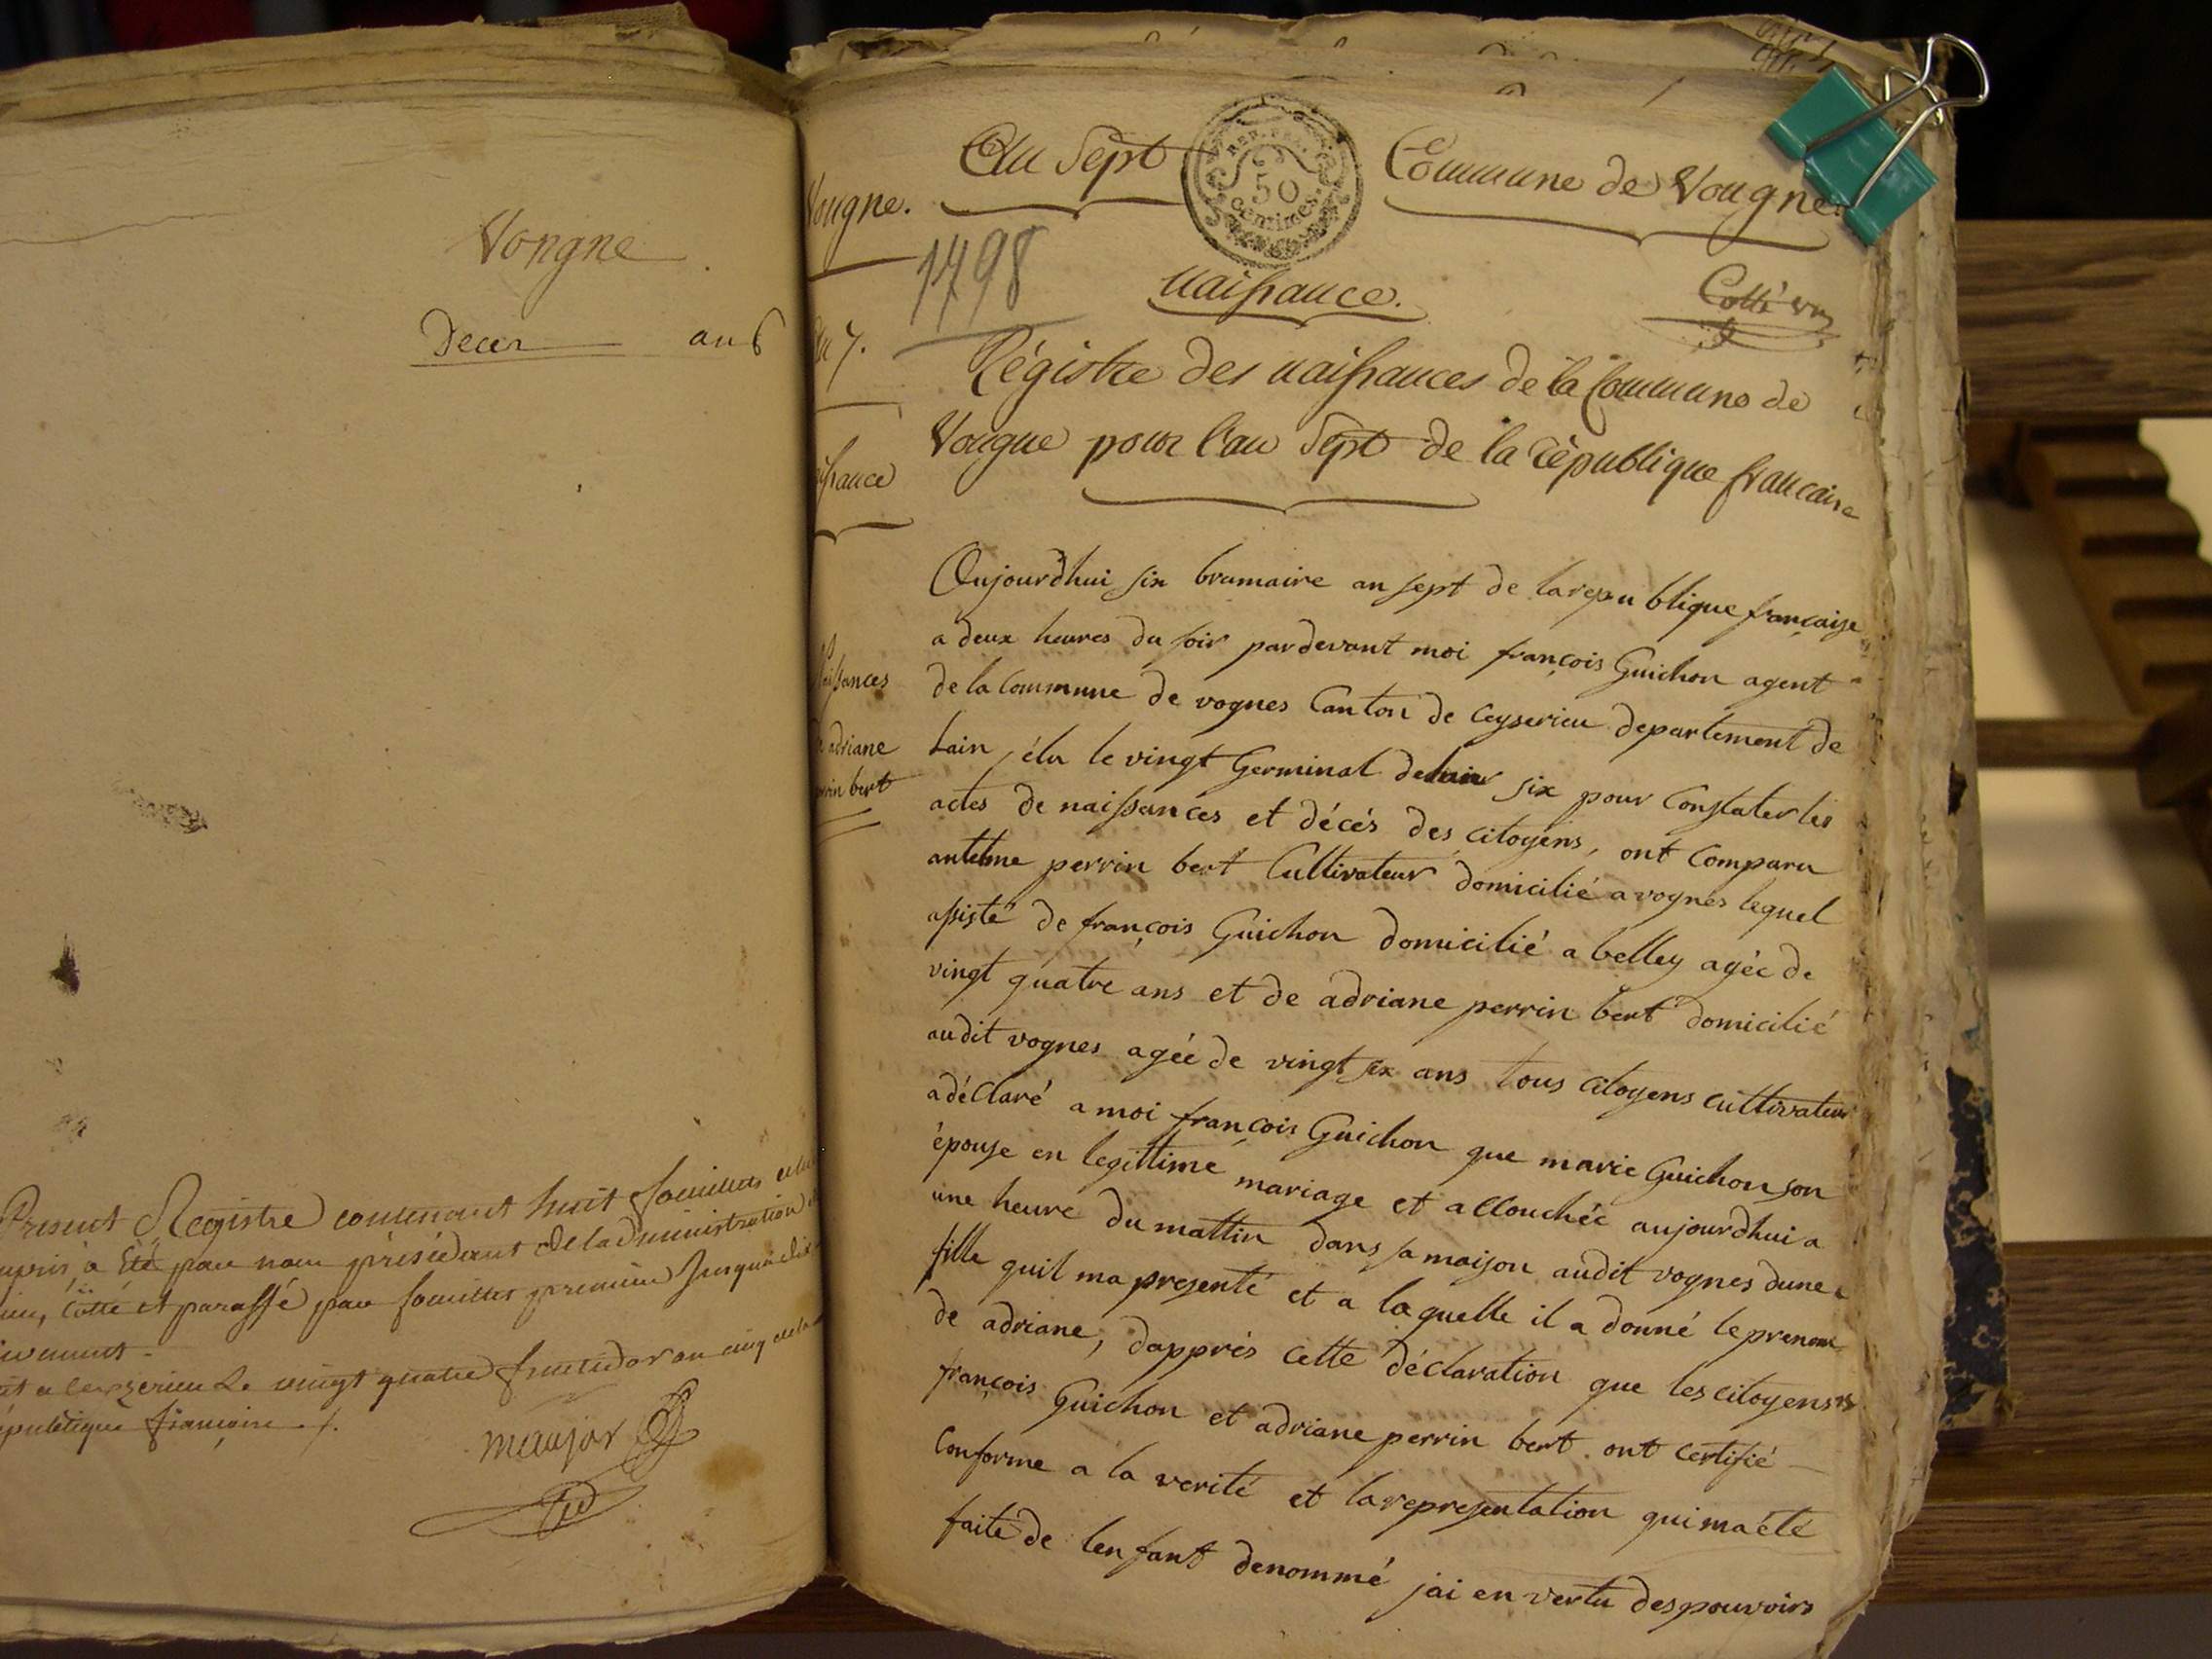 Vongne
Deces an 6
Present Registre contenant huit feuillets
a été par nous président de ladministration
Cotté et paraffé par feuillets premier Jusqua
Le vingt quatre fructidor an cinq de la
française
meaujor
Vougne.
an 7.
Naissances
adriane
perrin bert
An Sept
REP. FRA.
50
centimes
Commune de Vougne.
1798
naissance.
Cotté un
Régistre des naissances de la Commune de
Vougne pour l'an Sept de la république francaise
Aujourdhui six brumaire an sept de la republique française
a deux heures du soir pardevant moi françois Guichon agent
de la Commune de vognes Canton de Ceyserieu departement de
Lain, élu le vingt Germinal de lan six pour Constater les
actes de naissances et décés des citoyens, ont Comparu
antelme perrin bert Cultivateur domicilié a vognes lequel
assisté de françois Guichon domicilié a belley agée de
vingt quatre ans et de adriane perrin bert domicilié
audit vognes agée de vingt six ans tous citoyens cultivateur
a déclaré a moi françois Guichon que marie Guichon son
épouse en legittime mariage et accouchée aujourdhui a
une heure du mattin dans sa maison audit vognes dune
fille quil ma presenté et a laquelle il a donné le prenom
de adriane, dapprés cette déclaration que les citoyens
françois Guichon et adriane perrin bert ont certifié
Conforme a la verité et la representation qui ma été
faite de lenfant denommé jai en vertu des pouvoirs